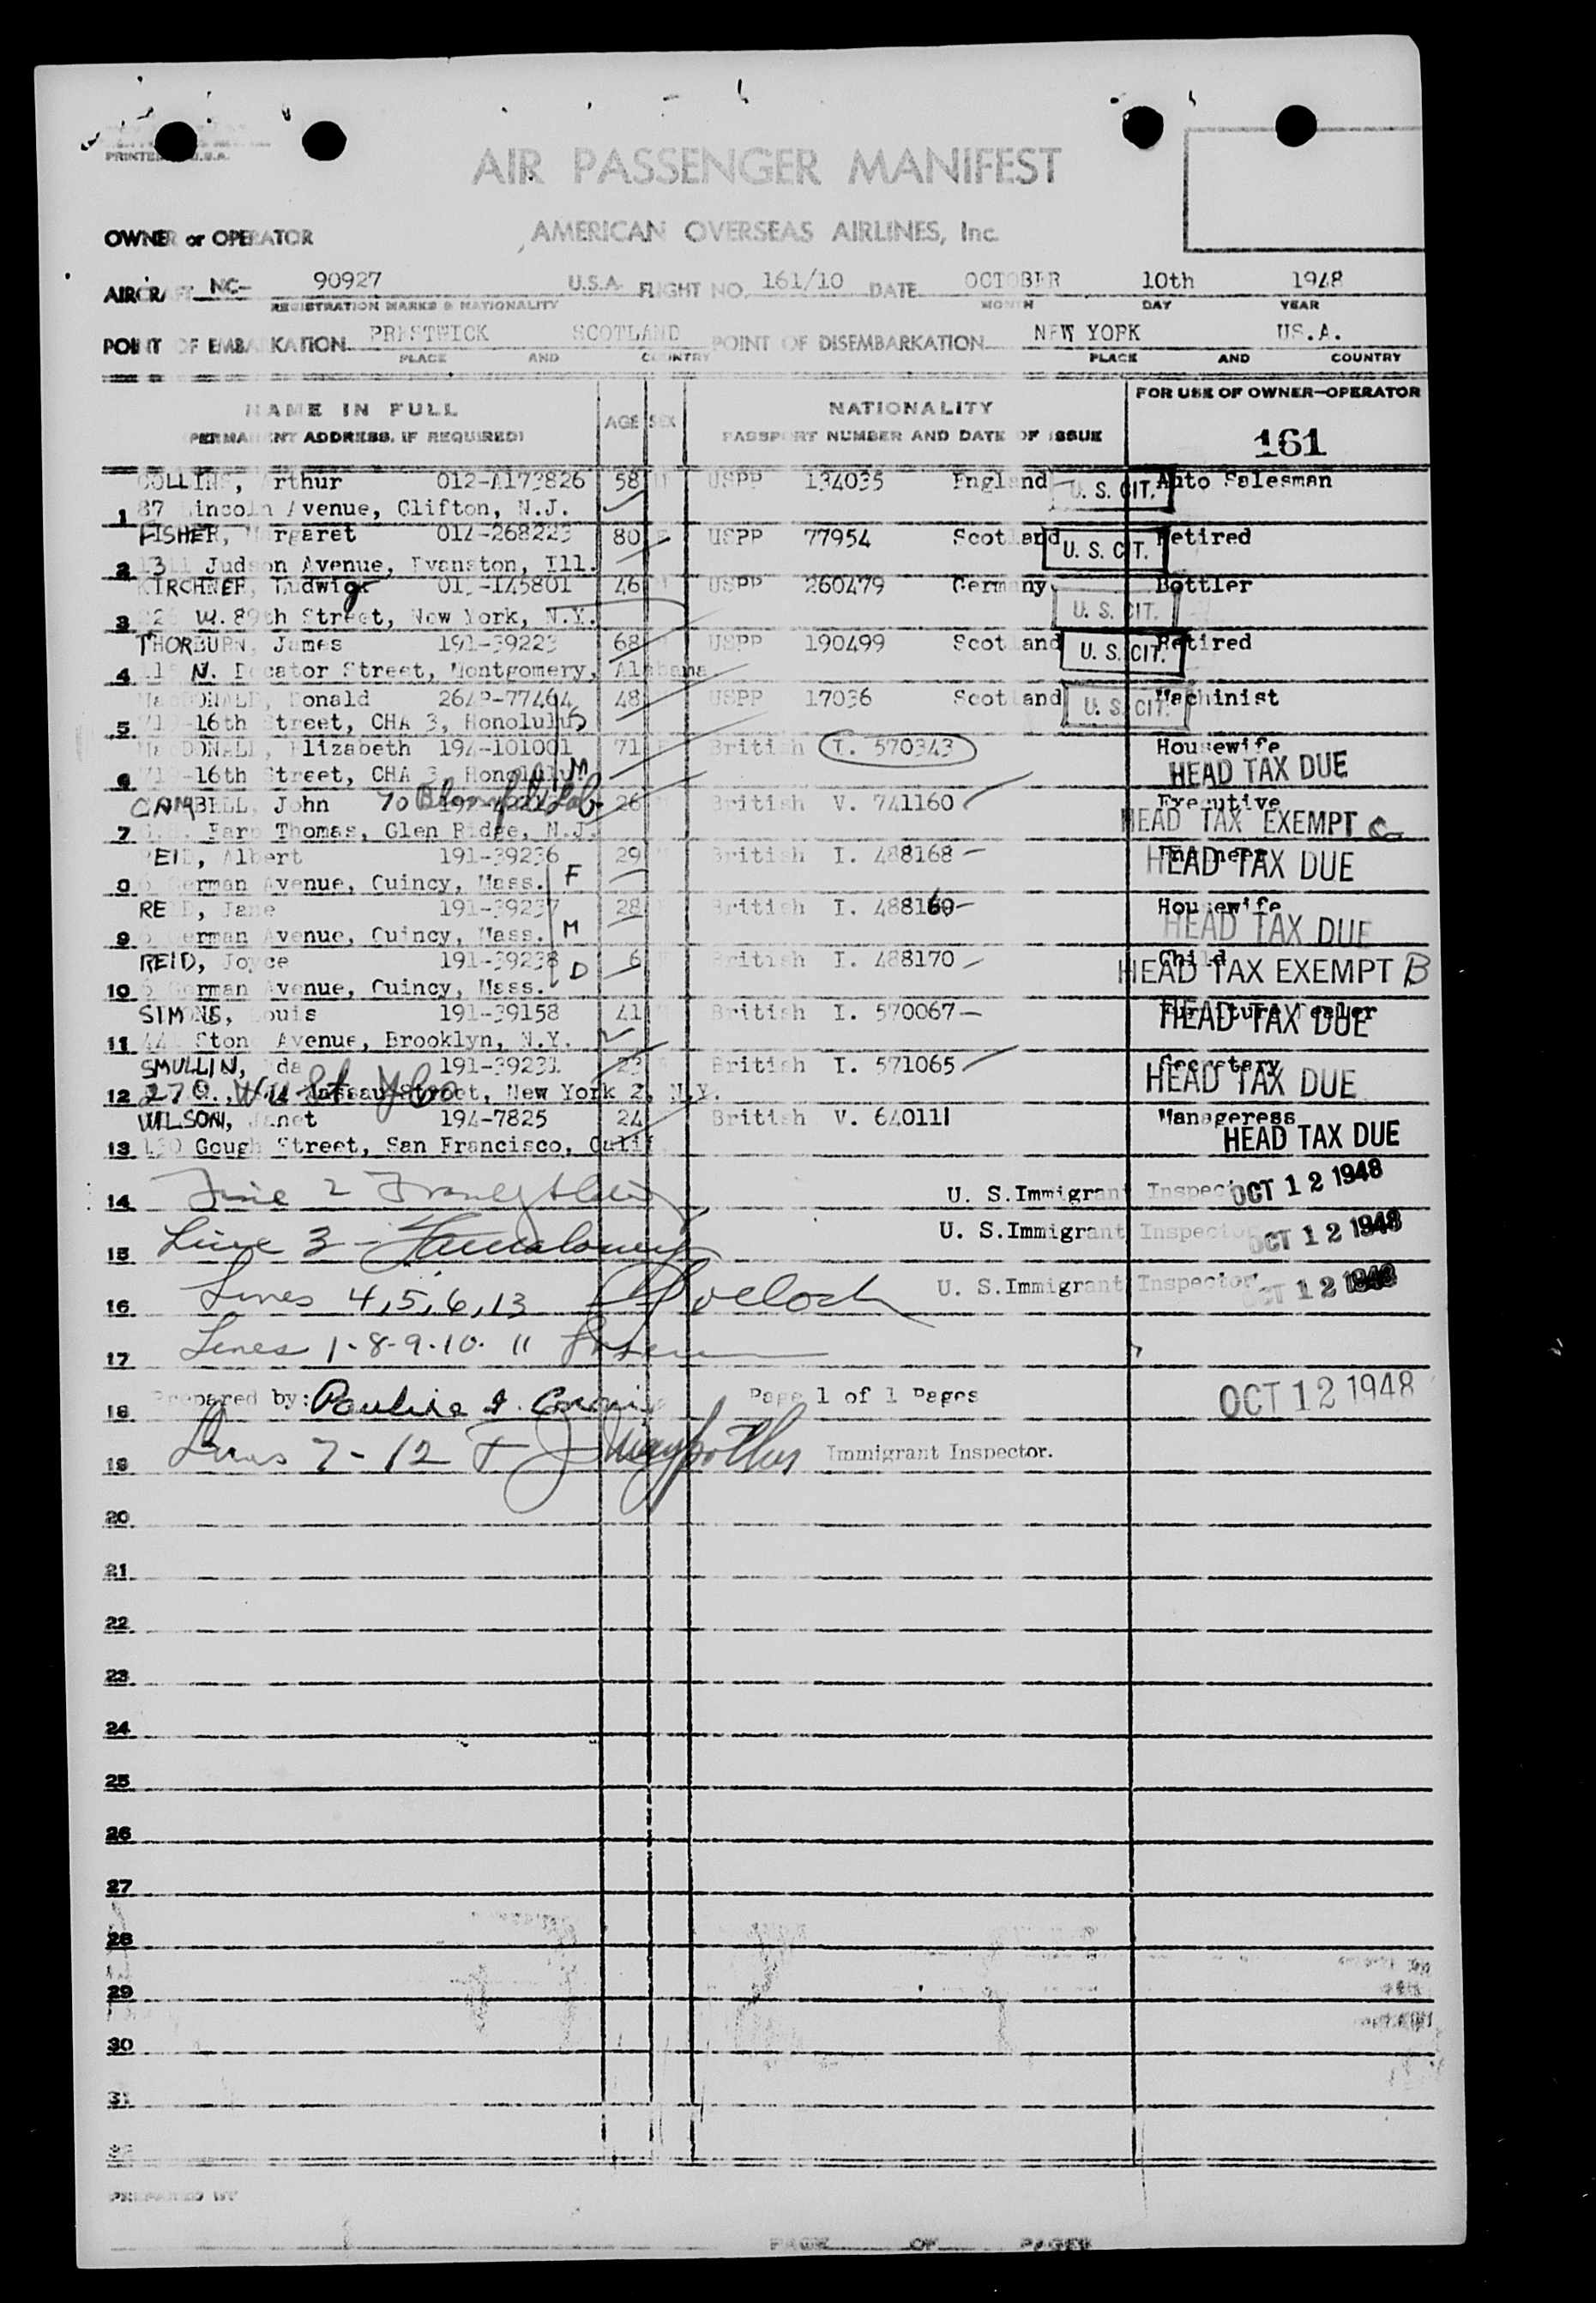 PRINTED U.S.A.
AIR PASSENGER MANIFEST
OWNER or OPERATOR AMERICAN OVERSEAS AIRLINES, Inc.
AIRCRAFT NC- 90927 U.S.A. FLIGHT NO. 161/10 DATE OCTOBER 10th 1948
REGISTRATION MARKS & NATIONALITY MONTH DAY YEAR
POINT OF EMBARKATION PRESTWICK SCOTLAND POINT OF DISEMBARKATION NEW YORK US.A.
PLACE AND COUNTRY PLACE AND COUNTRY
NAME IN FULL AGE SEX NATIONALITY FOR USE OF OWNER—OPERATOR
PERMANENT ADDRESS, IF REQUIRED) PASSPORT NUMBER AND DATE OF ISSUE
161
COLLINS, Arthur 012-A173826 58 USPP 134035 England U. S. CIT. Auto Salesman
1 87 Lincoln Avenue, Clifton, N.J.
FISHER, Margaret 014-268223 80 USPP 77954 Scotland U. S. CIT. Retired
2 Judson Avenue, Evanston, Ill.
KIRCHNER, Ludwig 46 USPP 260479 Germany U. S. CIT. Bottler
3 W. 89th Street, New York, N.Y.
THORBURN, James 191-39223 68 USPP 190499 Scotland U. S. CIT. Retired
4 N. Decator Street, Montgomery, Alabama
MacDONALD, Donald 48 USPP 17036 Scotland U. S. CIT. Machinist
5 719-16th Street, CHA 3, Honolulu
MacDONALD, Elizabeth 194-101001 71 British I. 570343 Housewife
6 719-16th Street, CHA 3, Honolulu M HEAD TAX DUE
CAMBELL, John 26 British V. 741160 Executive
7 Earp Thomas, Glen Ridge, N.J. HEAD TAX EXEMPT C
REID, Albert 191-39236 29 British I. 488168 Engineer
8 German Avenue, Quincy, Mass. F HEAD TAX DUE
REID, Jane 191-39237 28 British I. 488169 Housewife
9 German Avenue, Quincy, Mass. M HEAD TAX DUE
REID, Joyce 191-39238 6 British I. 488170 Child
10 German Avenue, Quincy, Mass. D HEAD TAX EXEMPT B
SIMONS, Louis 191-39158 41 British I. 570067 Furniture Dealer
11 Avenue, Brooklyn, N.Y. HEAD TAX DUE
SMULLIN, 191-39231 23 British I. 571065 Secretary
12 Nassau Street, New York 2, N.Y. HEAD TAX DUE
WILSON, Janet 194-7825 24 British V. 640111 Manageress
13 Gough Street, San Francisco, Calif HEAD TAX DUE
14 Line 2 U. S.Immigrant Inspector OCT 12 1948
15 Line 3 - U. S.Immigrant Inspector OCT 12 1948
16 Lines 4,5,6,13 U. S.Immigrant Inspector OCT 12 1948
17 Lines 1-8-9-10-11
18 Prepared by: Page 1 of 1 Pages OCT 12 1948
19 Lines 7-12 Immigrant Inspector.
20
21
22
23
24
25
26
27
28
29
30
31
32
PREPARED BY
PAGE OF PAGES